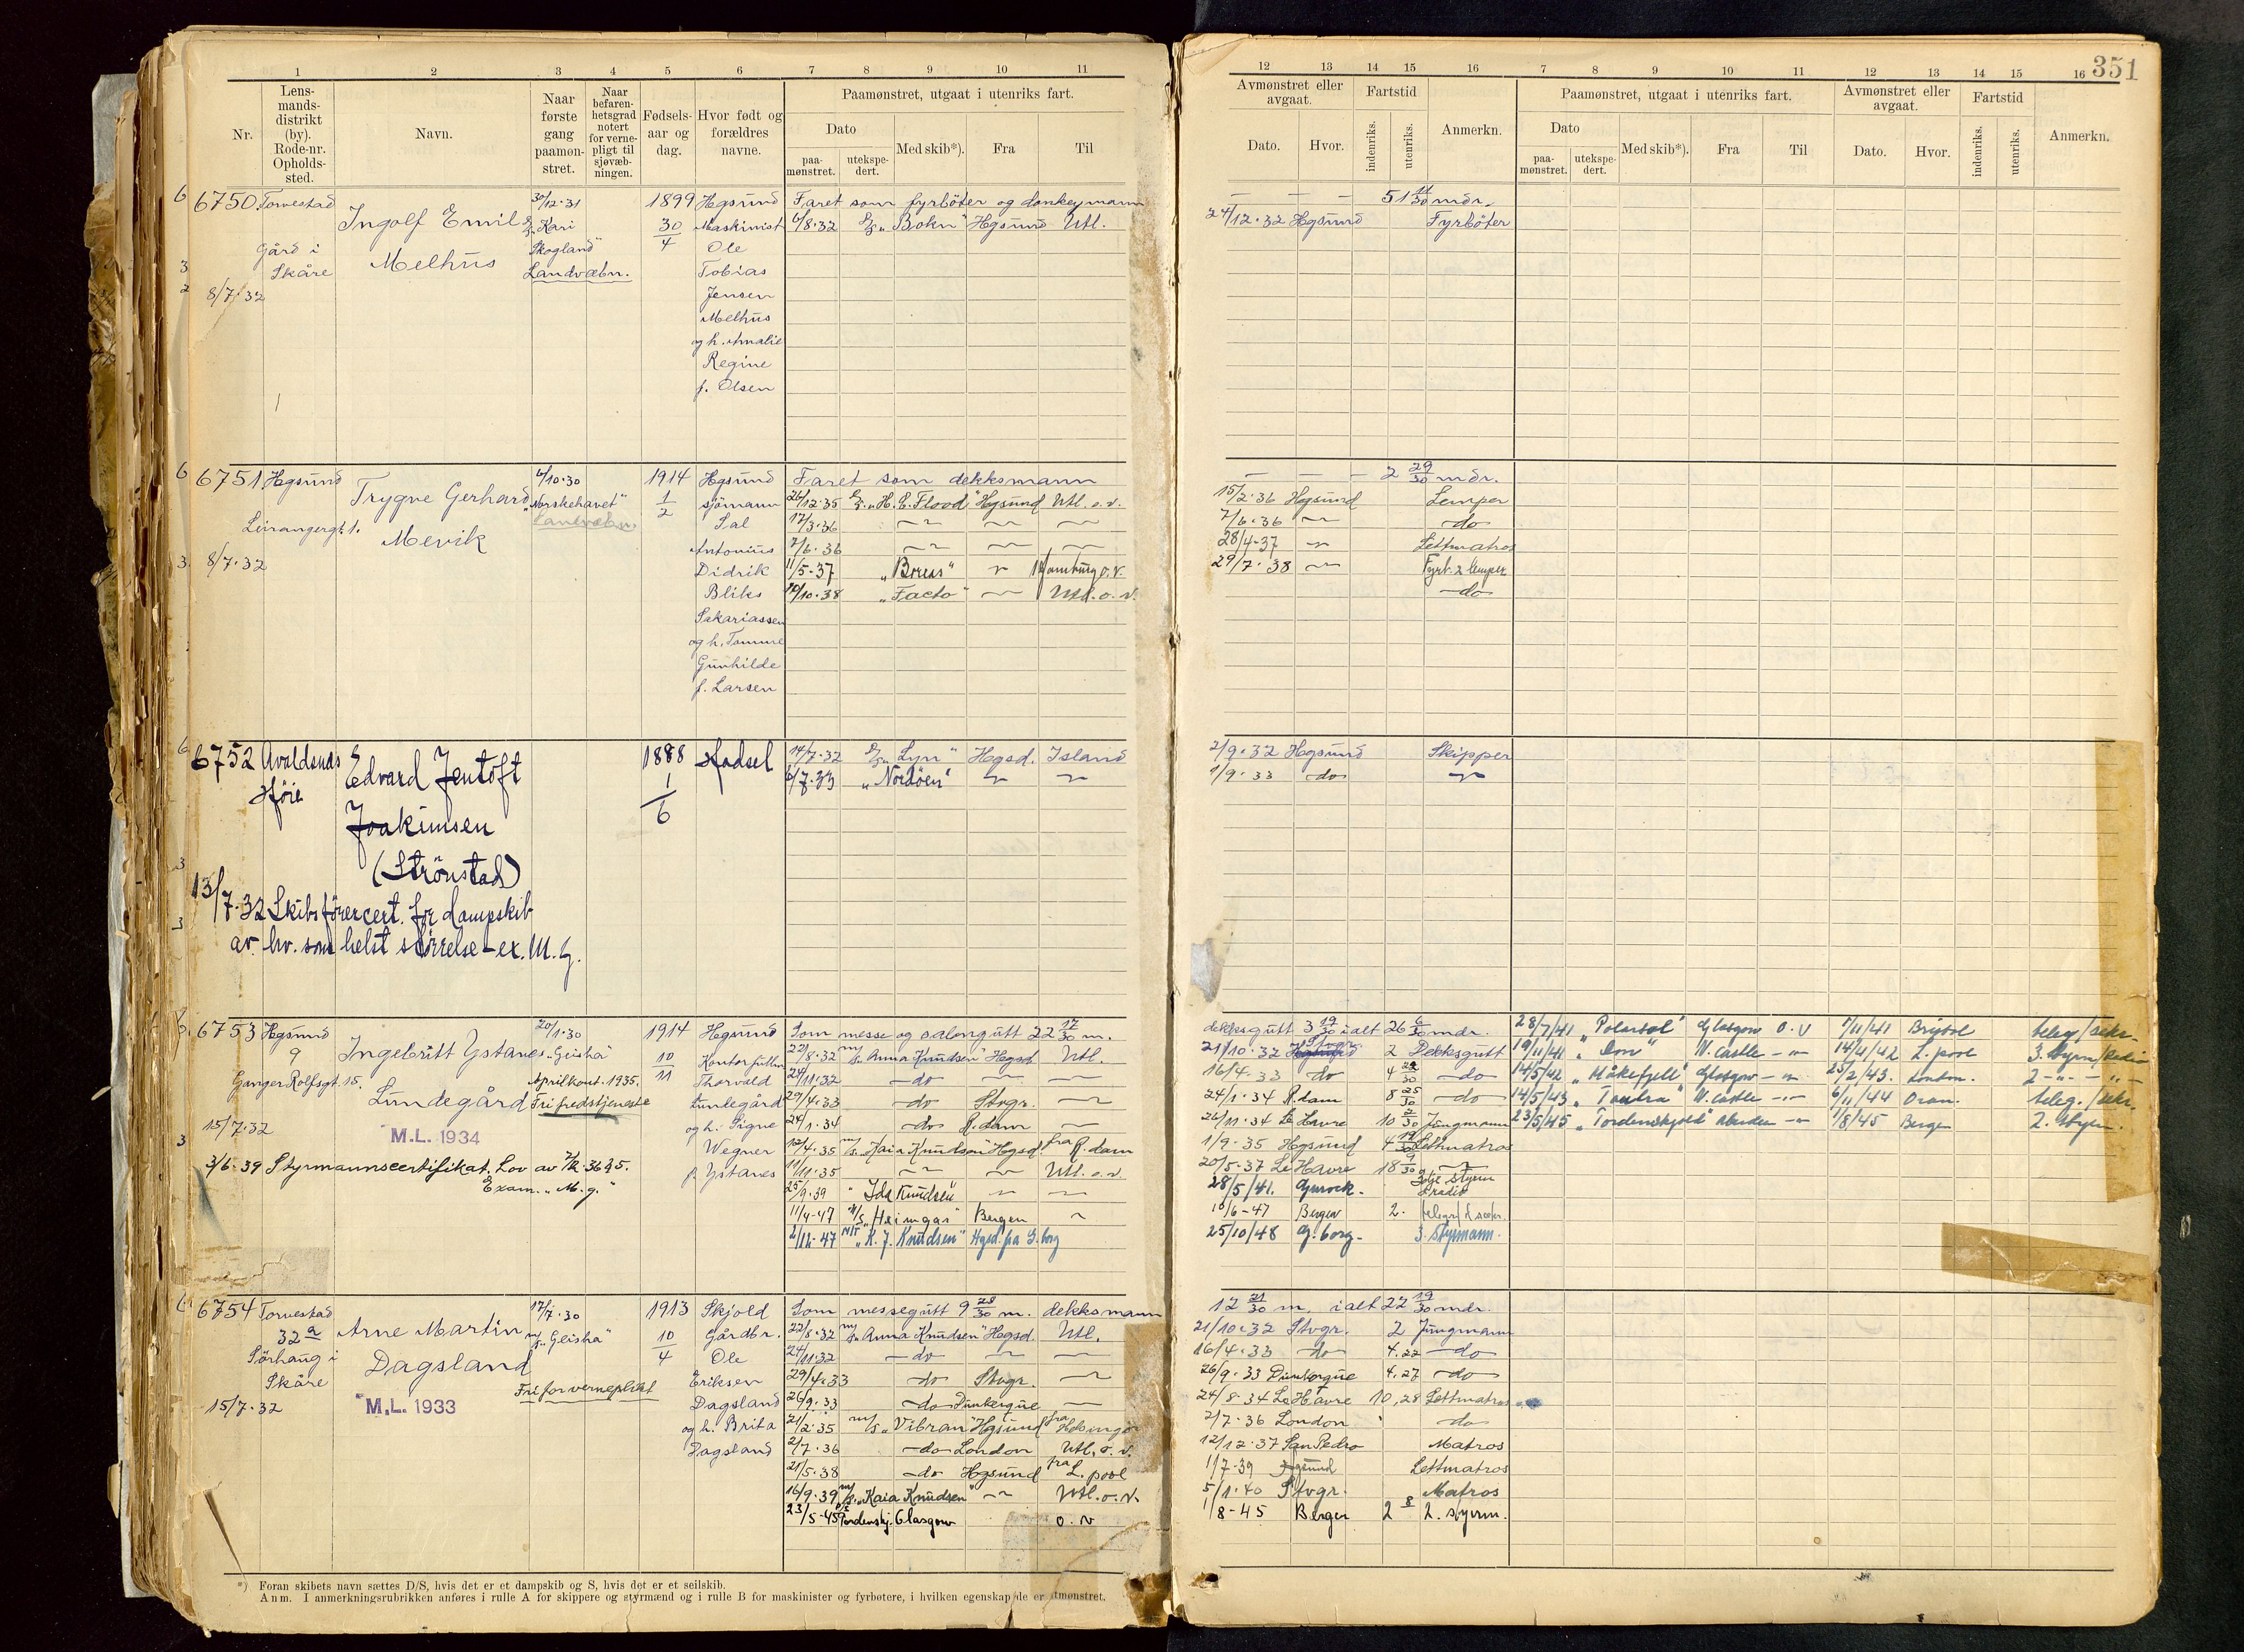 351
1 2 3 4 5 6 7 8 9 10 11
Nr.
Lens-
mands-
distrikt
(by).
Rode-nr.
Opholds-
sted.
Navn.
Naar
første
gang
paamøn-
stret.
Naar
befaren-
hetsgrad
notert
for verne-
pligt til
sjøvæb-
ningen.
Fødsels-
aar og
dag.
Hvor født og
forældres
navne.
Paamønstret, utgaat i utenriks fart.
Dato
paa-
mønstret.
utekspe-
dert.
Med skib*).
Fra
Til
12 13 14 15 16 7 8 9 10 11 12 13 14 15 16
Avmønstret eller
avgaat.
Dato.
Hvor.
Fartstid
indenriks.
utenriks.
Anmerkn.
Paamønstret, utgaat i utenriks fart.
Dato
paa-
mønstret.
utekspe-
dert.
Med skib*).
Fra
Til
Avmønstret eller
avgaat.
Dato.
Hvor.
Fartstid
indenriks.
utenriks.
Anmerkn.
6750 Torvestad
Gård i
Skåre
8/7.32
Ingolf Emil
Melhus
30/12.31
Kari
Skogland"
Landvæbn.
1899
30
4
Hgsund
Maskinist
Ole
Tobias
Jensen
Melhus
og h. Amalie
Regine
f. Olsen
Faret som fyrbøter og donkeymann
6/8.32 "Bokn" Hgsund Utl.
— — — 51 11/30 mdr.
24/12.32 Hgsund Fyrbøter
6751 Hgsund
8/7.32
Trygve Gerhard
Mevik
6/10.30
"Norskehavet"
Landvæbn.
1914
1
2
Hgsund
sjømann
Sal
Antonius
Didrik
Bliks
Sakariassen
og h. Tomine
Gunhilde
f. Larsen
Faret som dekksmann
24/12.35 "H. E. Flood" Hgsund Utl. o.v.
17/3.36
2/6.36
11/5.37 "Boreas" Hamburg o.v.
10/10.38 "Facto" Utl. o.v.
— — — 2 29/30 mdr.
15/2.36 Hgsund Lemper
7/6.36 do
28/4-37 Lettmatros
29/7.38 Fyrb. & lemper
do
6752 Avaldsnes
Edvard Jentoft
Joakimsen
(Strönstad)
1888
1
6
Hadsel
14/7.32 "Lyn" Hgsd. Island
6/7.33 "Nordöen"
2/9.32 Hgsund Skipper
1/9.33 do
13/7.32 Skibsförercert. for dampskib
av hv. som helst störrelse - ex. M. G.
6753 Hgsund
9
Ganger Rolfsgt. 15.
15/7.32
Ingebritt Ystanes
Lundegård
M.L. 1934
20/1.30
"Geisha"
Aprilkont. 1935.
Fri fredstjeneste
3/6.39 Styrmannscertifikat. Lov av 7/2.36 § 5.
Exam. "M. g."
1914
10
11
Hgsund
Kontorfullm
Thorvald
Lundegård
og h. Signe
Wegner
f. Ystanes
Som messe og salongutt 22 17/30 m.
22/8.32 "Anna Knudsen" Hgsd Utl.
24/11.32 do
29/4.33 do Stvgr.
24/1.34 do R.dam
12/4.35 "Kaia Knudsen" Hgsd. fra R.dam
11/11.35 Utl. o.v.
25/9.39 "Ida Knudsen"
11/4-47 M/S "Heimgar" Bergen
2/12-47 M/T "K. J. Knudsen" Hgsd. fra G.borg
dekksgutt 3 19/30 ialt 26 6/30 mdr.
21/10.32 Stvgr. 2 Dekksgutt
16/4.33 do 4 do
24/1.34 R.dam 8 25/30 do
26/11.34 Le Havre 10 2/30 Jungmann
1/9.35 Hgsund 4 19/30 Lettmatros
20/5-37 Le Havre 18 9/30
28/5/41. Gourock. 3dje styrm
& radio
10/6-47 Bergen 2.
25/10/48 G.borg. 3. Styrmann.
28/7/41 "Polarsol" Glasgow o.v 7/11/41 Bristol teleg/sekr.
19/11/41 "Don" N. Castle 14/4/42 L.pool 3. styrm/radio
14/5/42 "Håkefjell" Glasgow 25/2/43. London. 2
14/5/43 "Tautra" N. Castle 6/11/44 Oran. teleg./sekr.
23/5/45 "Tordenskjold" Aberdeen 1/8/45 Bergen 2. Styrm.
6754 Torvestad
32 a
Sörhaug i
Skåre
15/7.32
Arne Martin
Dagsland
M.L. 1933
17/7.30
"Geisha"
Fri for verneplikt
1913
10
4
Skjold
Gårdbr.
Ole
Eriksen
Dagsland
og h. Brita
Dagsland
Som messegutt 9 28/30 m. dekksmann
22/8.32 "Anna Knudsen" Hgsd. Utl.
24/11.32 do
29/4.33 do Stvgr.
26/9.33 do Dunkerque
21/2.35 "Vibran" Hgsund fra Helsingör
2/7.36 do London Utl. o.v.
21/5.38 do Hgsund fra L.pool
16/9.39 "Kaia Knudsen" Utl. o.v.
23/5-45 Tordenskj. Glasgow o.v
12 21/30 m, ialt 22 19/30 mdr.
21/10.32 Stvgr. 2 Jungmann
16/4.33 do 4.22 do
26/9.33 Dunkerque 4.27 do
24/8-34 Le Havre 10,28 Lettmatros
2/7.36 London do
12/12.37 San Pedro Matros
1/7-39 Hgsund Lettmatros
5/1.40 Stvgr. Matros
1/8-45 Bergen 2 8 2. styrm.
*) Foran skibets navn sættes D/S, hvis det er et dampskib og S, hvis det er et seilskib.
Anm. I anmerkningsrubrikken anføres i rulle A for skippere og styrmænd og i rulle B for maskinister og fyrbøtere, i hvilken egenskap de er utmønstret.